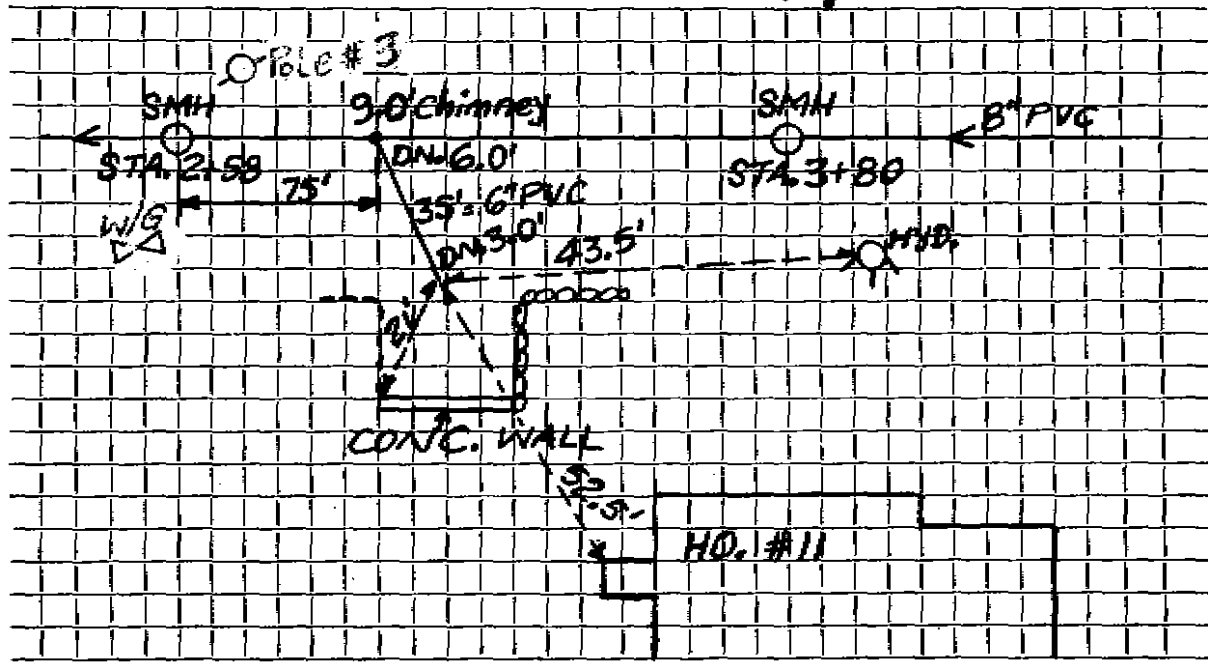 Pole #3
SMH
9.0' Chimney
SMH
8" PVC
STA. 2+58
DN. 6.0'
STA. 3+80
75'
35'-6" PVC
W/G
DN. 3.0'
43.5'
HYD.
21'
CONC. WALL
52.5'
HO. #11